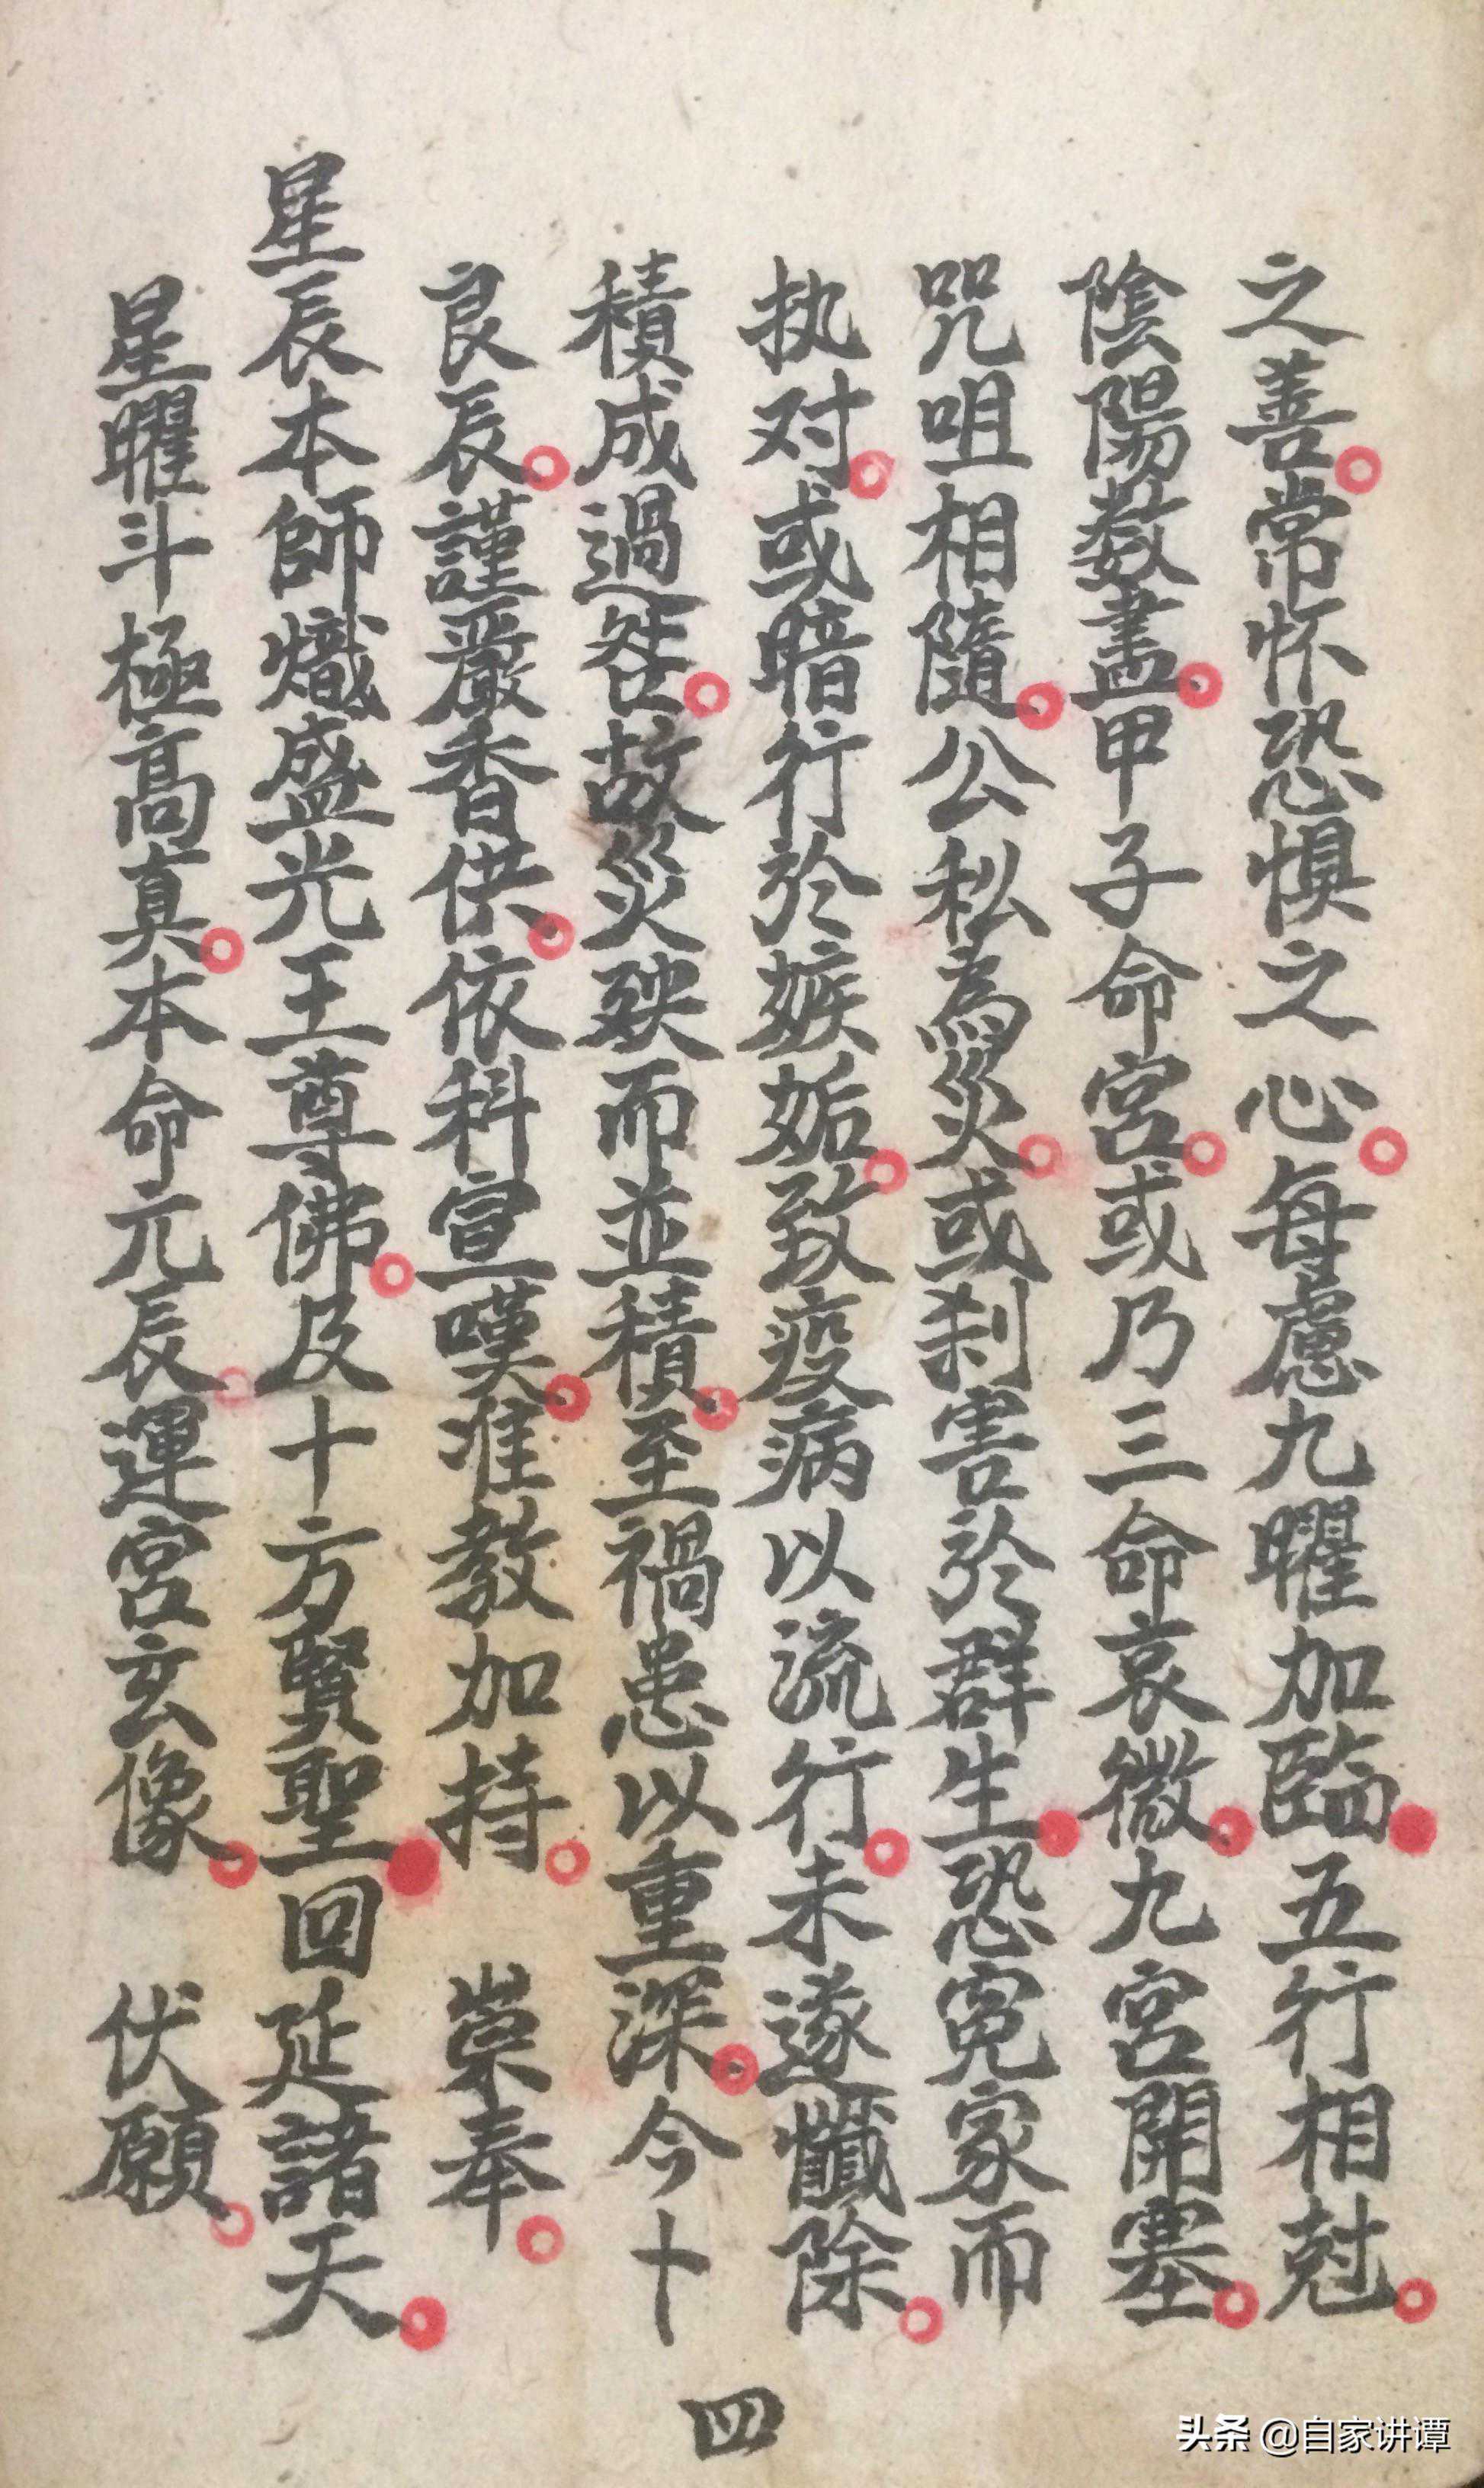 之善。常怀恐惧之心。每慮九曜加臨。五行相尅。
陰陽数盡。甲子命宮。或乃三命哀微。九宮開塞。
咒咀相隨。公私為災。或刹害於群生。恐冤家而
执对。或暗行於嫉妬。致疫病以流行。未遂懺除。
積成過咎。故災殃而並積。至禍患以重深。今卜
良辰。謹嚴香供。依科宣嘆。准教加持。 崇奉。
星辰本師熾盛光王尊佛。及十方賢聖。回延諸天。
星曜斗極高真。本命元辰。運宮玄像。 伏願。
四
头条 @自家讲谭